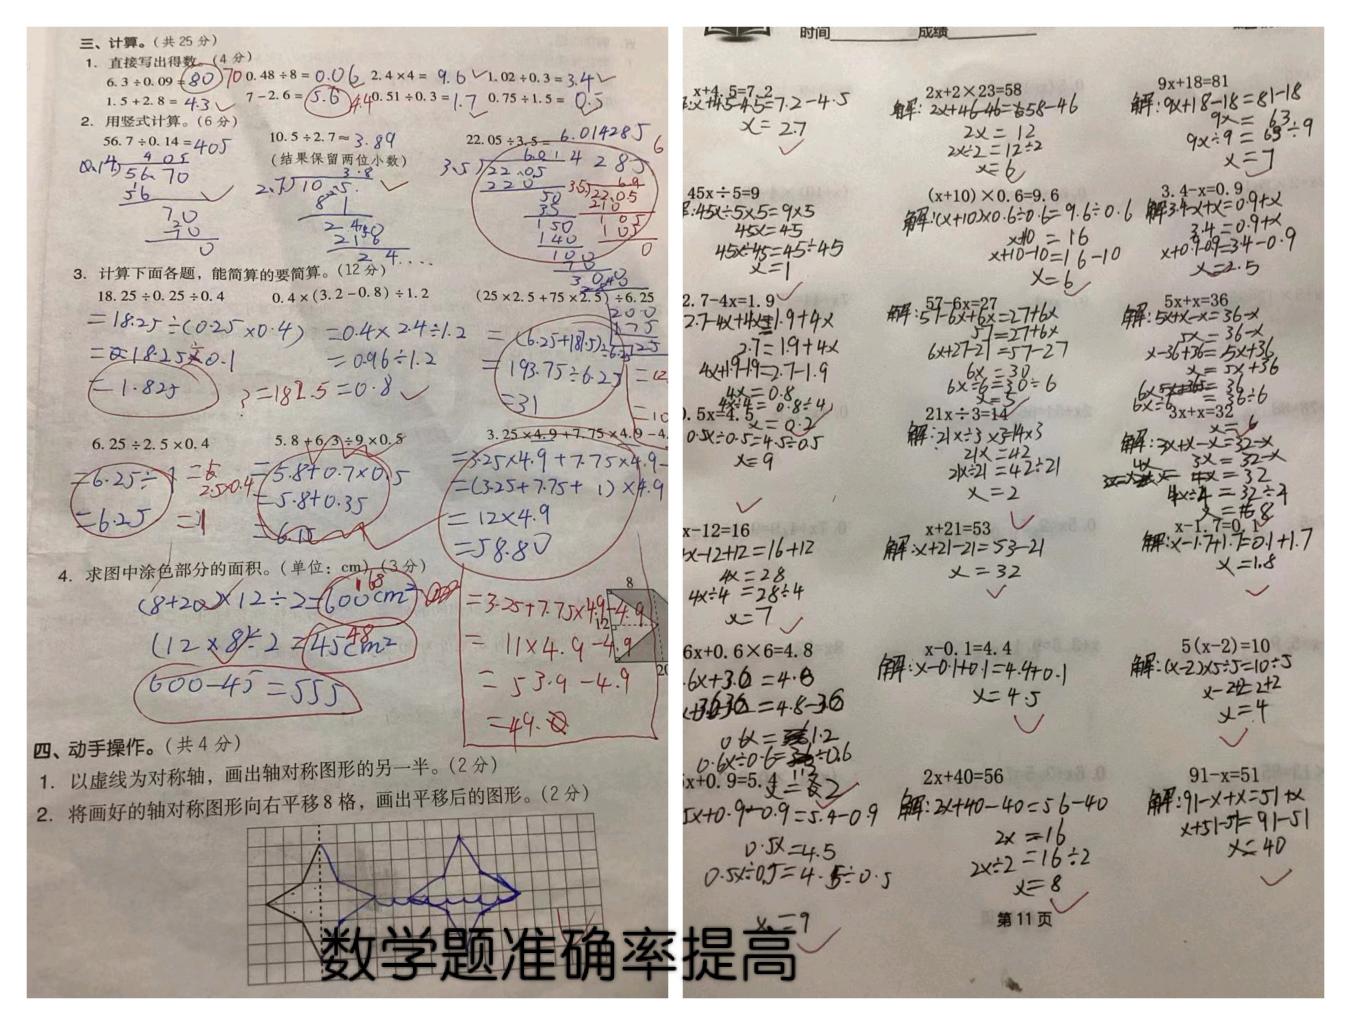 三、计算。(共 25 分)
1. 直接写出得数。(4 分)
6. 3 ÷ 0. 09 = 80 70 0. 48 ÷ 8 = 0.06 2. 4 × 4 = 9.6 1. 02 ÷ 0. 3 = 3.4
1. 5 + 2. 8 = 4.3 7 − 2. 6 = 5.6 4.4 0. 51 ÷ 0. 3 = 1.7 0. 75 ÷ 1. 5 = 0.5
2. 用竖式计算。(6 分)
56. 7 ÷ 0. 14 = 405 10. 5 ÷ 2. 7 ≈ 3.89 22. 05 ÷ 3. 5 = 6.014285
(结果保留两位小数)
3. 计算下面各题，能简算的要简算。(12 分)
18. 25 ÷ 0. 25 ÷ 0. 4 0. 4 × (3. 2 − 0. 8) ÷ 1. 2 (25 × 2. 5 + 75 × 2. 5) ÷ 6. 25
= 18.25 ÷ (0.25 × 0.4) = 0.4 × 2.4 ÷ 1.2
= 0.96 ÷ 1.2 = 193.75 ÷ 6.25
= 1.825 = 0.8 = 31
6. 25 ÷ 2. 5 × 0. 4 5. 8 + 6. 3 ÷ 9 × 0. 5 3. 25 × 4. 9 + 7. 75 × 4. 9 − 4.
= 6.25 ÷ 1 = 5.8 + 0.7 × 0.5 = 3.25 × 4.9 + 7.75 × 4.9 −
= 6.25 = 1 = 5.8 + 0.35 = (3.25 + 7.75 + 1) × 4.9
= 6.15 = 12 × 4.9
= 58.80
4. 求图中涂色部分的面积。(单位：cm) (3 分)
(8+20) × 12 ÷ 2 = 600cm² 168
(12 × 8) ÷ 2 = 45cm² 48
600 − 45 = 555
8
12
20
= 3.25 + 7.75 × 4.9 − 4.9
= 11 × 4.9 − 4.9
= 53.9 − 4.9
= 49.
四、动手操作。(共 4 分)
1. 以虚线为对称轴，画出轴对称图形的另一半。(2 分)
2. 将画好的轴对称图形向右平移 8 格，画出平移后的图形。(2 分)
时间 成绩
x+4.5=7.2 2x+2×23=58 9x+18=81
x+4.5-4.5=7.2-4.5 解: 2x+46-46=58-46 解: 9x+18-18=81-18
x=2.7 2x=12 9x=63
2x÷2=12÷2 9x÷9=63÷9
x=6 x=7
45x÷5=9 (x+10)×0.6=9.6 3.4-x=0.9
45x÷5×5=9×5 解:(x+10)×0.6÷0.6=9.6÷0.6 解:3.4-x+x=0.9+x
45x=45 x+10=16 3.4=0.9+x
45x÷45=45÷45 x+10-10=16-10 x+0.9-0.9=3.4-0.9
x=1 x=6 x=2.5
2.7-4x=1.9 57-6x=27 5x+x=36
2.7-4x+4x=1.9+4x 解:57-6x+6x=27+6x 解:5x+x-x=36-x
2.7=1.9+4x 57=27+6x 5x=36-x
4x+1.9-1.9=2.7-1.9 6x+27-27=57-27 x-36+36=5x+36
4x=0.8 6x=30 x=5x+36
4x÷4=0.8÷4 6x÷6=30÷6
x=0.2 x=5 x=6
0.5x=4.5 21x÷3=14 3x+x=32
0.5x÷0.5=4.5÷0.5 解:21x÷3×3=14×3 解:3x+x-x=32-x
x=9 21x=42 3x=32-x
21x÷21=42÷21 4x=32
x=2 4x÷4=32÷4
x=8
x-12=16 x+21=53 x-1.7=0.1
x-12+12=16+12 解:x+21-21=53-21 解:x-1.7+1.7=0.1+1.7
4x=28 x=32 x=1.8
4x÷4=28÷4
x=7
6x+0.6×6=4.8 x-0.1=4.4 5(x-2)=10
.6x+3.6=4.8 解:x-0.1+0.1=4.4+0.1 解:(x-2)×5÷5=10÷5
x=4.5 x-2+2=2+2
0.6x=1.2 x=4
0.6x÷0.6= ÷0.6
x=2
x+0.9=5.4 2x+40=56 91-x=51
5x+0.9-0.9=5.4-0.9 解:2x+40-40=56-40 解:91-x+x=51+x
0.5x=4.5 2x=16 x+51-51=91-51
0.5x÷0.5=4.5÷0.5 2x÷2=16÷2 x=40
x=9 x=8
第 11 页
数学题准确率提高